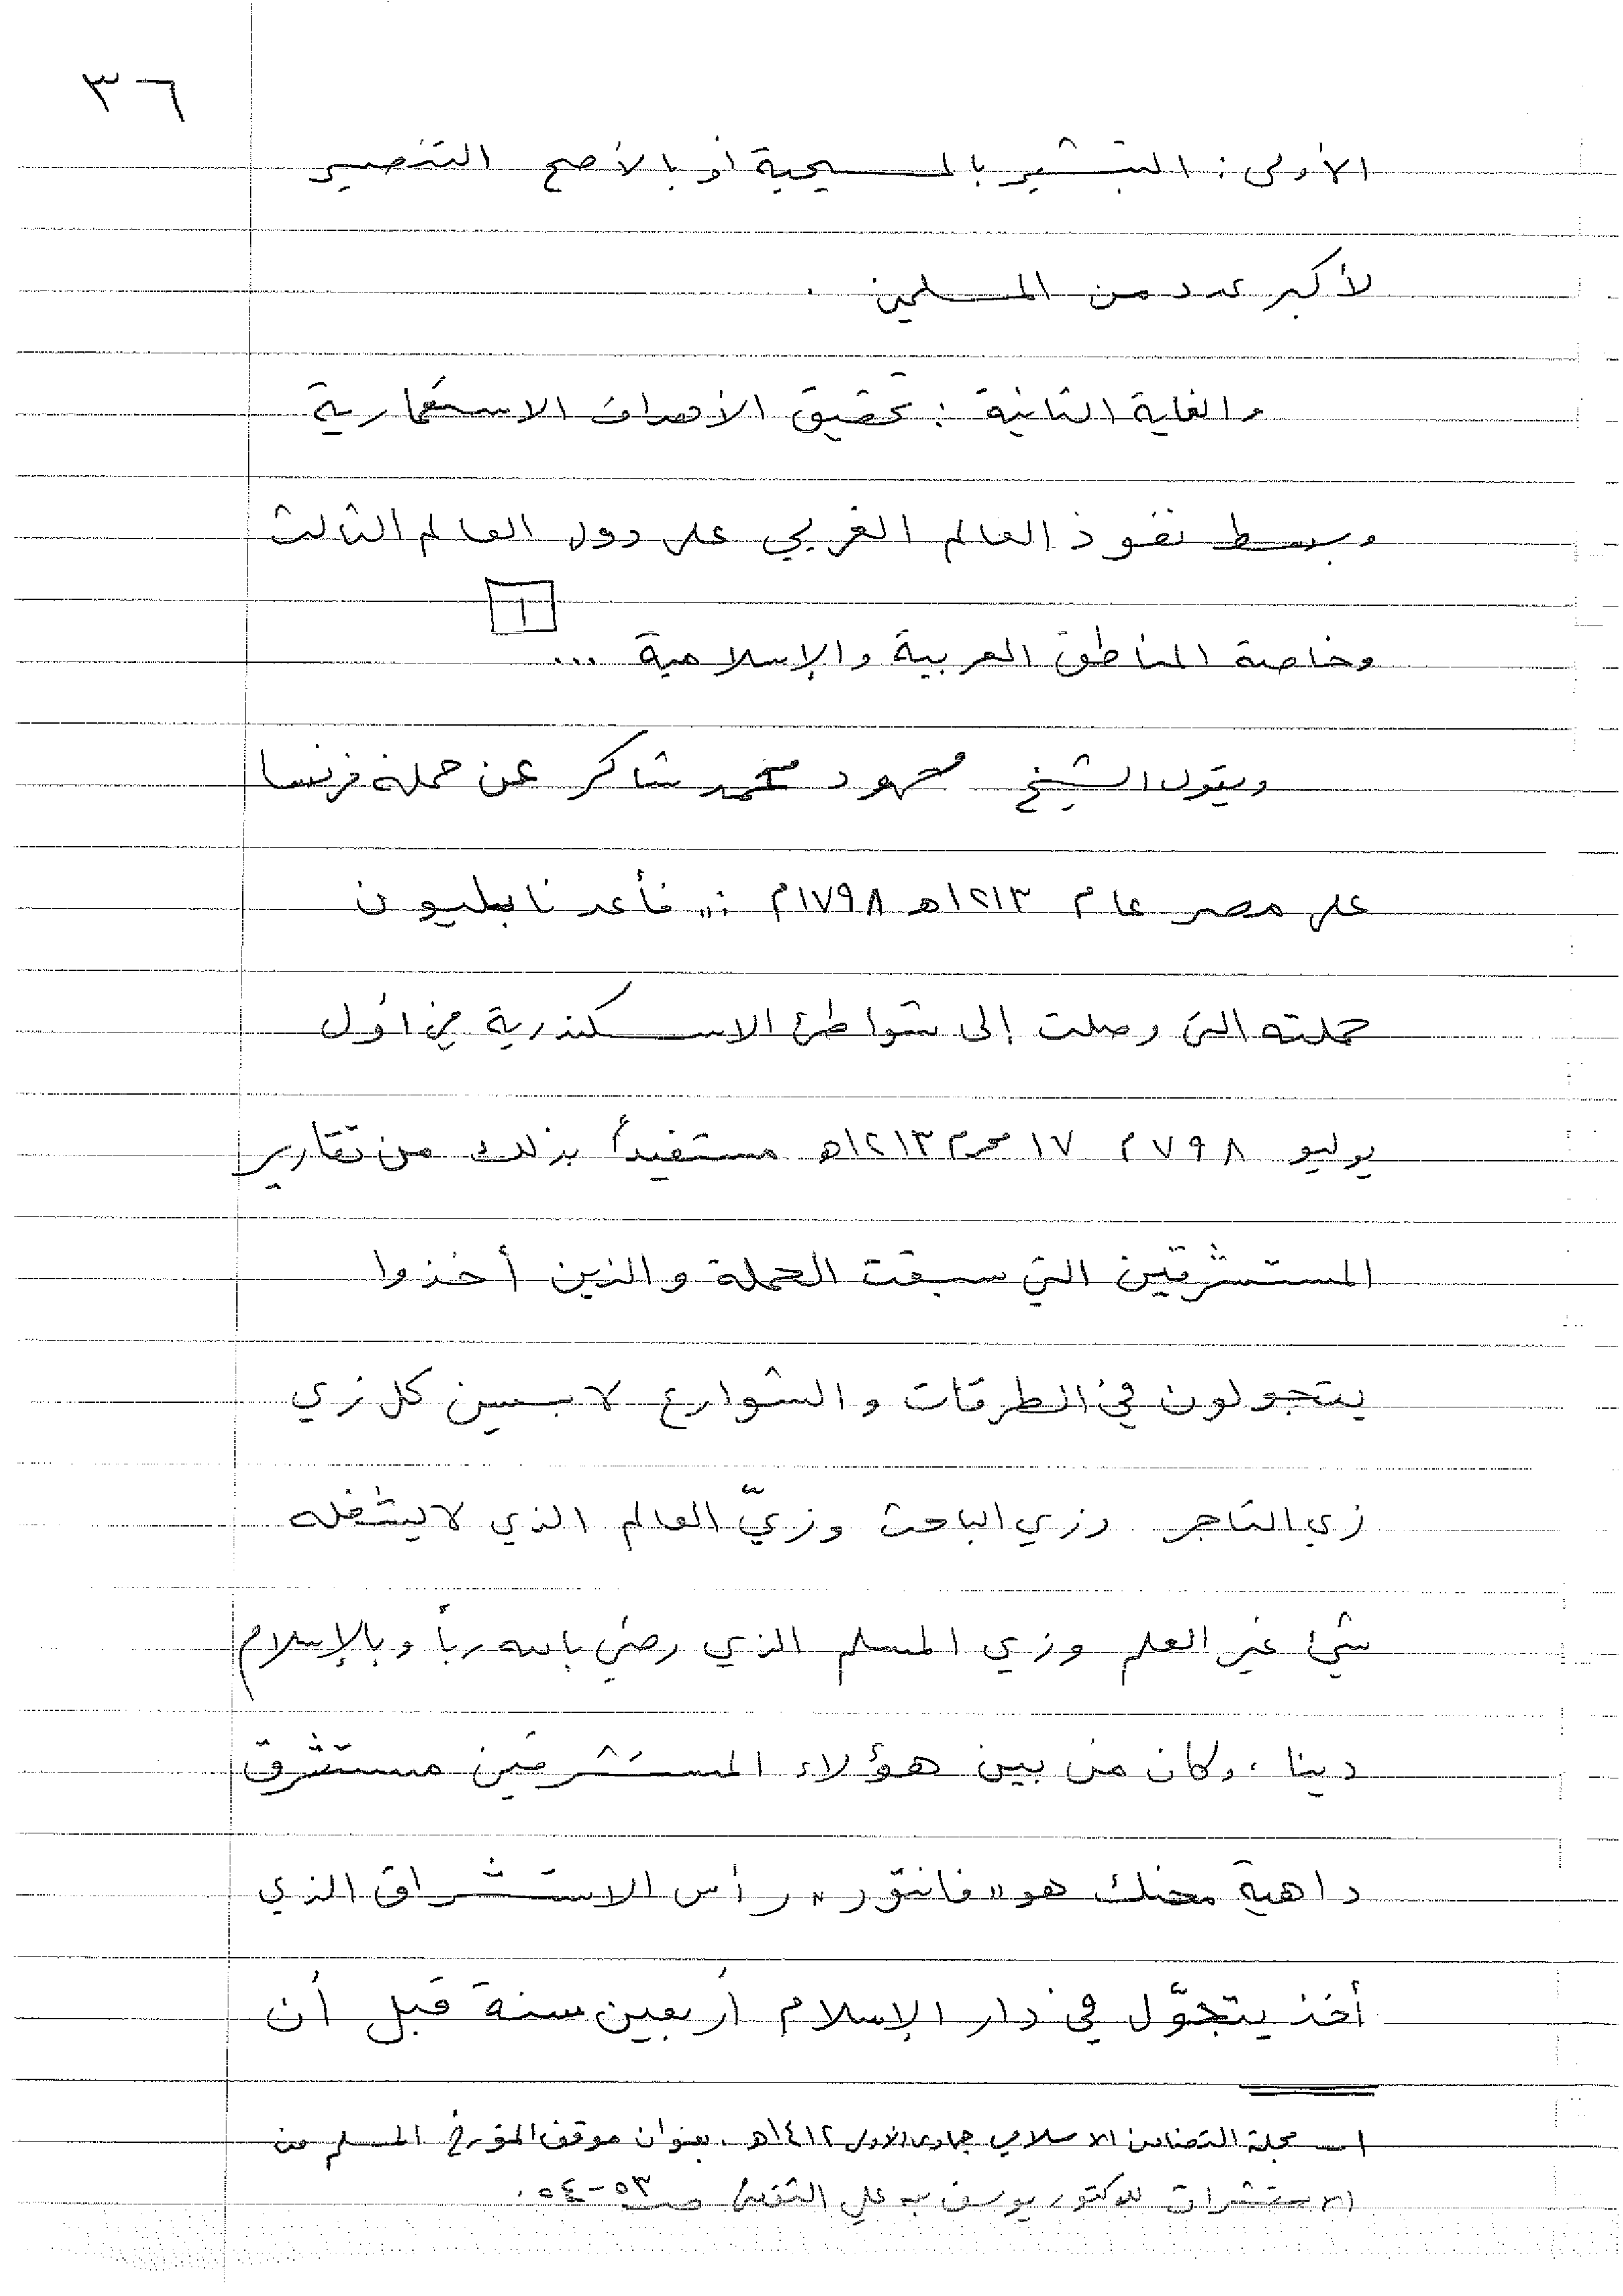 ٣٦
الأولى : التبشير بالمسيحية أو بالأصح التنصير
لأكبر عدد من المسلمين .
والغاية الثانية : تحقيق الأهداف الاستعمارية
وبسط نفوذ العالم الغربي على دول العالم الثالث
وخاصة المناطق العربية والإسلامية ... [١]
ويقول الشيخ محمود محمد شاكر عن حملة فرنسا
على مصر عام ١٢١٣هـ ١٧٩٨م : „ فأعد نابليون
حملته التي وصلت إلى شواطئ الاسكندرية في أول
يوليو ٧٩٨م ١٧ محرم ١٢١٣هـ مستفيداً بذلك من تقارير
المستشرقين التي سبقت الحملة والذين أخذوا
يتجولون في الطرقات والشوارع لابسين كل زي
زي التاجر وزي الباحث وزيّ العالم الذي لا يشغله
شيئ غير العلم وزي المسلم الذي رضي بالله رباً وبالإسلام
دينا ، وكان من بين هؤلاء المستشرقين مستشرق
داهية محنك هو „ فانتور „ رأس الاستشراق الذي
أخذ يتجوّل في دار الإسلام أربعين سنة قبل أن
١ـ مجلة التضامن الاسلامي جمادى الأول ١٤١٢هـ . بعنوان موقف المؤرخ المسلم من
الاستشراق للدكتور يوسف بن علي صـ ٥٣-٥٤ .